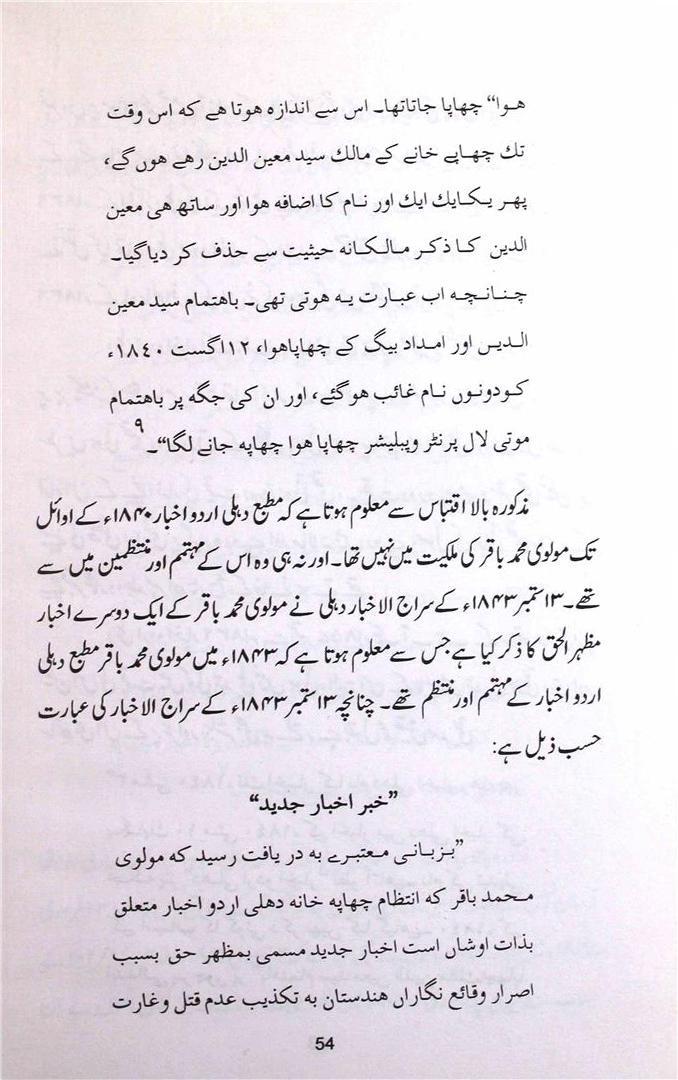 ہوا“ چھاپا جاتاتھا۔ اس سے اندازہ ہوتا ہے کہ اس وقت
تک چھاپے خانے کے مالک سید معین الدین رہے ہوں گے،
پھر یکایک ایک اور نام کا اضافہ ہوا اور ساتھ ہی معین
الدین کا ذکر مالکانہ حیثیت سے حذف کر دیاگیا۔
چنانچہ اب عبارت یہ ہوتی تھی۔ باہتمام سید معین
الدین اور امداد بیگ کے چھاپاہوا، ۱۲اگست ۱۸۴۰ء
کودونوں نام غائب ہوگئے، اور ان کی جگہ پر باہتمام
موتی لال پرنٹر وپبلیشر چھاپا ہوا چھاپہ جانے لگا“۔۹
مذکورہ بالا اقتباس سے معلوم ہوتا ہے کہ مطبع دہلی اردو اخبار ۱۸۴۰ء کے اوائل
تک مولوی محمد باقر کی ملکیت میں نہیں تھا۔ اور نہ ہی وہ اس کے مہتمم اور منتظمین میں سے
تھے۔ ۱۳ ستمبر ۱۸۴۳ء کے سراج الاخبار دہلی نے مولوی محمد باقر کے ایک دوسرے اخبار
مظہر الحق کا ذکر کیا ہے جس سے معلوم ہوتا ہے کہ ۱۸۴۳ء میں مولوی محمد باقر مطبع دہلی
اردو اخبار کے مہتمم اور منتظم تھے۔ چنانچہ ۱۳ ستمبر ۱۸۴۳ء کے سراج الاخبار کی عبارت
حسب ذیل ہے:
”خبر اخبار جدید“
”بزبانی معتبرے بہ در یافت رسید کہ مولوی
محمد باقر کہ انتظام چھاپہ خانہ دھلی اردو اخبار متعلق
بذات اوشاں است اخبار جدید مسمی بمظہر حق بسبب
اصرار وقائع نگاراں ہندستان بہ تکذیب عدم قتل وغارت
54